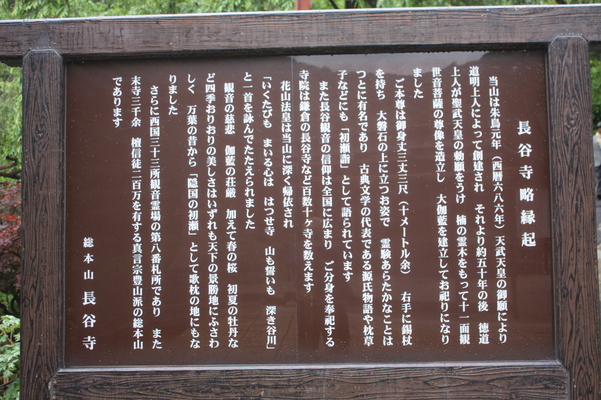 長谷寺略縁起
当山は朱鳥元年（西暦六八六年）天武天皇の御願により
道明上人によって創建され　それより約五十年の後　徳道
上人が聖武天皇の勅願をうけ　楠の霊木をもって十一面観
世音菩薩の尊像を造立し　大伽藍を建立してお祀りになり
ました
ご本尊は御身丈三丈三尺（十メートル余）　右手に錫杖
を持ち　大磐石の上に立つお姿で　霊験あらたかなことは
つとに有名であり　古典文学の代表である源氏物語や枕草
子などにも「初瀬詣」として語られています
また長谷観音の信仰は全国に広まり　ご分身を奉祀する
寺院は鎌倉の長谷寺など百数十ヶ寺を数えます
花山法皇は当山に深く帰依され
「いくたびも　まいる心は　はつせ寺　山も誓いも　深き谷川」
と一首を詠んでたたえられました
観音の慈悲　伽藍の荘厳　加えて春の桜　初夏の牡丹な
ど四季おりおりの美しさはいずれも天下の景勝地にふさわ
しく　万葉の昔から「隠国の初瀬」として歌枕の地にもな
りました
さらに西国三十三所観音霊場の第八番札所であり　また
末寺三千余　檀信徒二百万を有する真言宗豊山派の総本山
であります
総本山　長谷寺